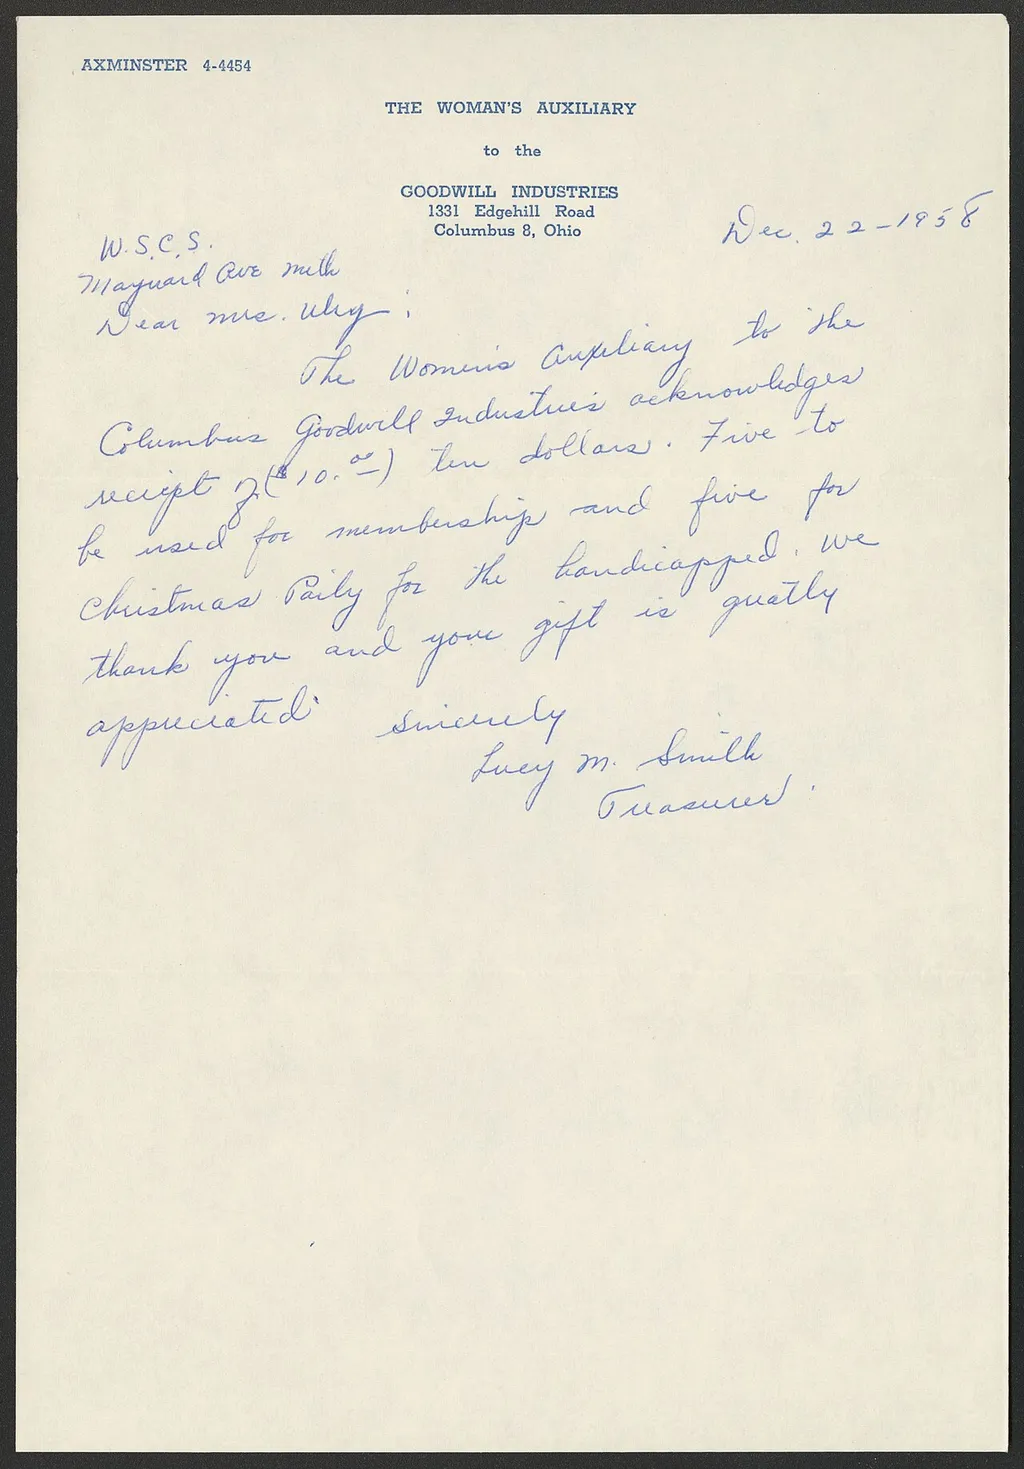 AXMINSTER 4-4454
THE WOMAN'S AUXILIARY
to the
GOODWILL INDUSTRIES
1331 Edgehill Road
Columbus 8, Ohio
Dec. 22-1958
W.S.C.S.
Maynard Ave Meth
Dear Mrs. :
The Women's Auxiliary to the
Columbus Goodwill Industries acknowledges
receipt of ($10.00) ten dollars. Five to
be used for membership and five for
Christmas Party for the handicapped. We
thank you and your gift is greatly
appreciated.
Sincerely
Lucy M. Smith
Treasurer.